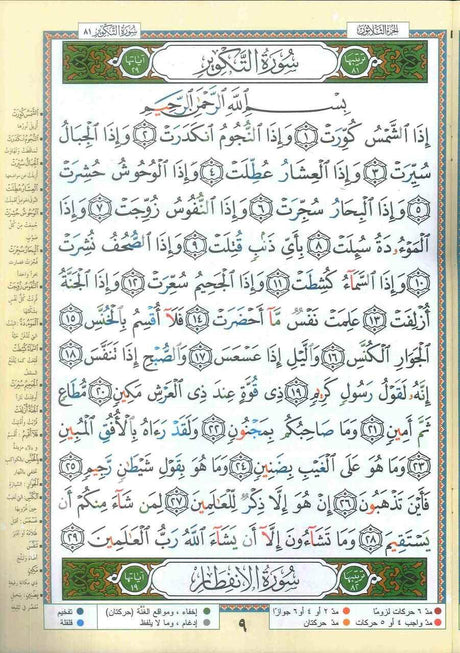 الجزء الثلاثون
سورة التكوير ٨١
ترتيبها ٨١
سُورَةُ التَّكْوِيرِ
آياتها ٢٩
بِسْمِ اللَّهِ الرَّحْمَٰنِ الرَّحِيمِ
إِذَا الشَّمْسُ كُوِّرَتْ ١ وَإِذَا النُّجُومُ انكَدَرَتْ ٢ وَإِذَا الْجِبَالُ
سُيِّرَتْ ٣ وَإِذَا الْعِشَارُ عُطِّلَتْ ٤ وَإِذَا الْوُحُوشُ حُشِرَتْ
٥ وَإِذَا الْبِحَارُ سُجِّرَتْ ٦ وَإِذَا النُّفُوسُ زُوِّجَتْ ٧ وَإِذَا
الْمَوْءُۥدَةُ سُئِلَتْ ٨ بِأَيِّ ذَنۢبٍ قُتِلَتْ ٩ وَإِذَا الصُّحُفُ نُشِرَتْ
١٠ وَإِذَا السَّمَآءُ كُشِطَتْ ١١ وَإِذَا الْجَحِيمُ سُعِّرَتْ ١٢ وَإِذَا الْجَنَّةُ
أُزْلِفَتْ ١٣ عَلِمَتْ نَفْسٌ مَّآ أَحْضَرَتْ ١٤ فَلَآ أُقْسِمُ بِالْخُنَّسِ ١٥
الْجَوَارِ الْكُنَّسِ ١٦ وَالَّيْلِ إِذَا عَسْعَسَ ١٧ وَالصُّبْحِ إِذَا تَنَفَّسَ ١٨
إِنَّهُۥ لَقَوْلُ رَسُولٍ كَرِيمٍ ١٩ ذِى قُوَّةٍ عِندَ ذِى الْعَرْشِ مَكِينٍ ٢٠ مُّطَاعٍ
ثَمَّ أَمِينٍ ٢١ وَمَا صَاحِبُكُم بِمَجْنُونٍ ٢٢ وَلَقَدْ رَءَاهُ بِالْأُفُقِ الْمُبِينِ
٢٣ وَمَا هُوَ عَلَى الْغَيْبِ بِضَنِينٍ ٢٤ وَمَا هُوَ بِقَوْلِ شَيْطَٰنٍ رَّجِيمٍ ٢٥
فَأَيْنَ تَذْهَبُونَ ٢٦ إِنْ هُوَ إِلَّا ذِكْرٌ لِّلْعَٰلَمِينَ ٢٧ لِمَن شَآءَ مِنكُمْ أَن
يَسْتَقِيمَ ٢٨ وَمَا تَشَآءُونَ إِلَّآ أَن يَشَآءَ اللَّهُ رَبُّ الْعَٰلَمِينَ ٢٩
ترتيبها ٨٢
سُورَةُ الِانفِطَارِ
آياتها ١٩
مدّ ٦ حركات لزوماً
مدّ ٢ أو ٤ أو ٦ جوازاً
إخفاء، ومواقع الغُنَّة (حركتان)
تفخيم
مدّ واجب ٤ أو ٥ حركات
مدّ حركتان
إدغام، وما لا يلفظ
قلقلة
٩